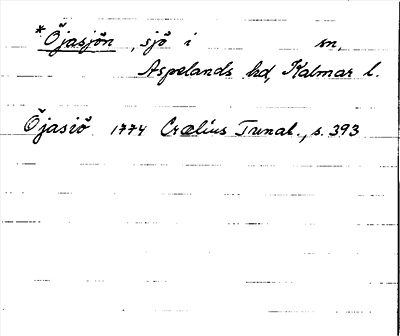 *Öjasjön, sjö i sn,
Aspelands hd, Kalmar l.
Öjasiö 1774 Crælius Tunal., s. 393